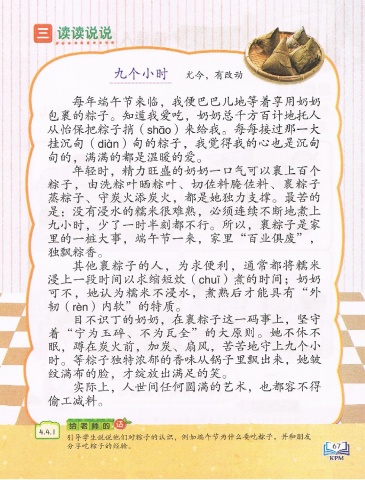 三 读读说说
九个小时 尤今，有改动
每年端午节来临，我便巴巴儿地等着享用奶奶
包裹的粽子。知道我爱吃，奶奶总千方百计地托人
从怡保把粽子捎（shāo）来给我。每每接过那一大
挂沉甸（diàn）甸的粽子，我觉得我的心也是沉甸
甸的，满满的都是温暖的爱。
年轻时，精力旺盛的奶奶一口气可以裹上百个
粽子，由洗粽叶晒粽叶、切佐料腌佐料、裹粽子
蒸粽子、守炭火添炭火，都是她独力支撑。最苦的
是：没有浸水的糯米很难熟，必须连续不断地煮上
九小时，少了一时半刻都不行。所以，裹粽子是家
里的一桩大事，端午节一来，家里“百业俱废”，
独飘粽香。
其他裹粽子的人，为求便利，通常都将糯米
浸上一段时间以求缩短炊（chuī）煮的时间；奶奶
可不，她认为糯米不浸水，煮熟后才能具有“外
韧（rèn）内软”的特质。
目不识丁的奶奶，在裹粽子这一码事上，坚守
着“宁为玉碎、不为瓦全”的大原则。她不休不
眠，蹲在炭火前，加炭、扇风，苦苦地守上九个小
时。等粽子独特浓郁的香味从锅子里飘出来，她皱
纹满布的脸，才绽放出满足的笑。
实际上，人世间任何圆满的艺术，也都容不得
偷工减料。
给老师的话
4.4.1 引导学生说说他们对粽子的认识，例如端午节为什么要吃粽子，并和朋友
分享吃粽子的经验。
67
KPM